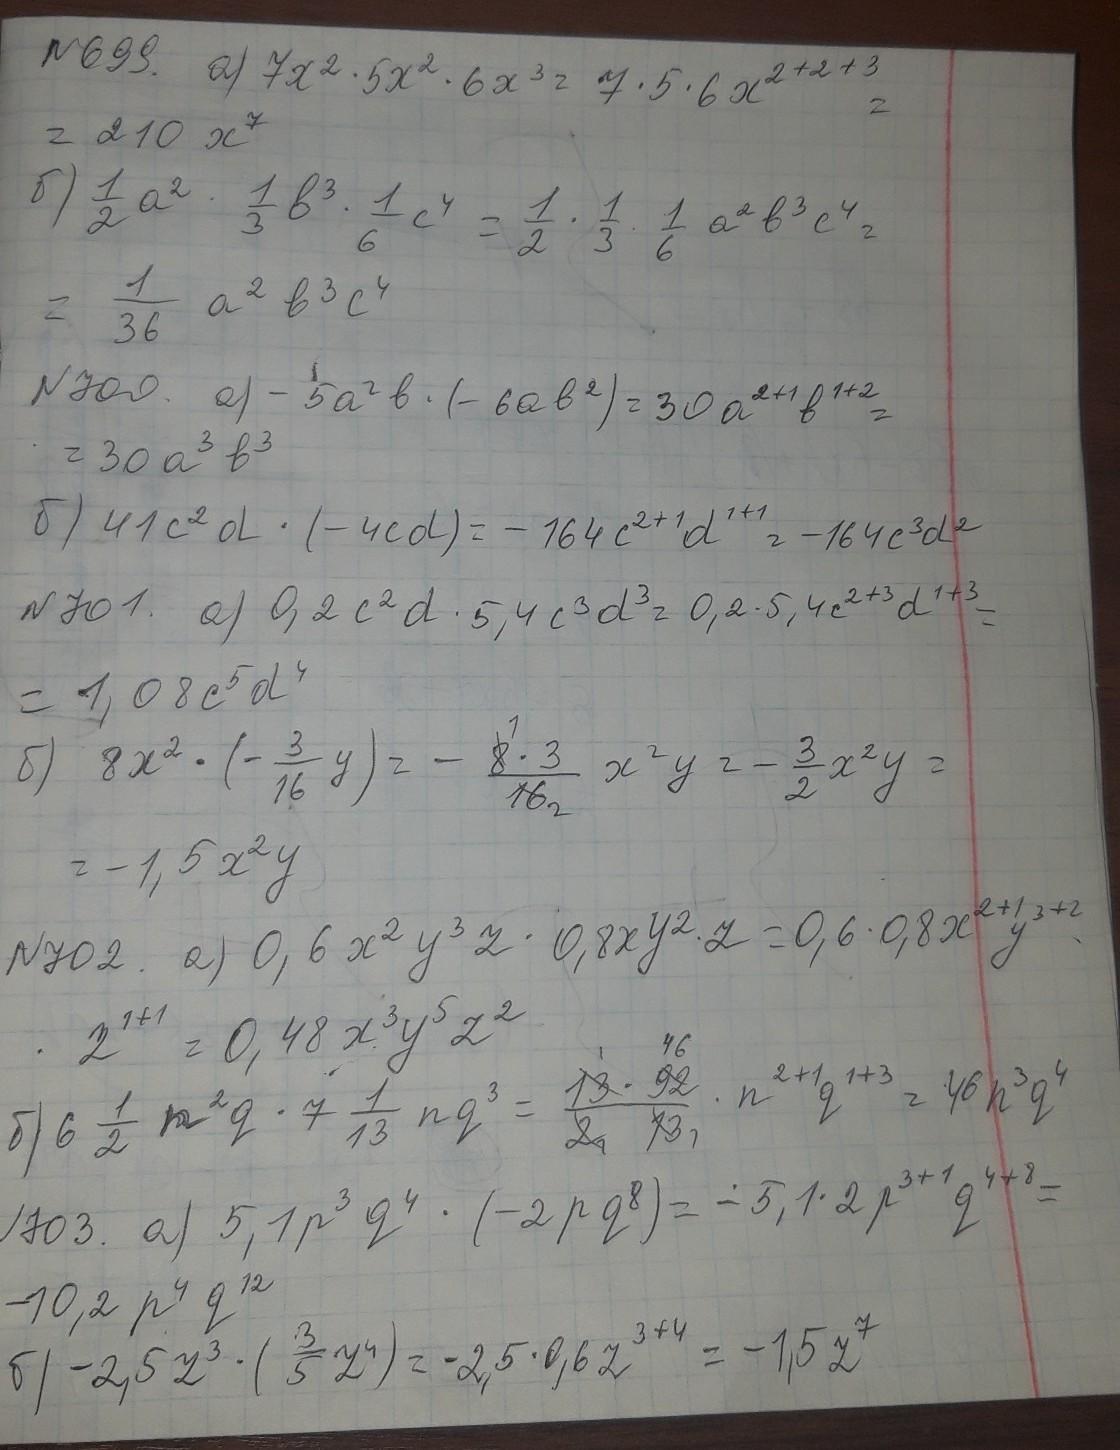 №699. а) 7x²·5x²·6x³= 7·5·6x²⁺²⁺³ =
= 210 x⁷
б) 1/2 a² · 1/3 b³ · 1/6 c⁴ = 1/2 · 1/3 · 1/6 a²b³c⁴ =
= 1/36 a² b³c⁴
№700. а) -5a²b·(-6ab²)=30a²⁺¹b¹⁺²=
=30a³b³
б) 41c²d·(-4cd)=-164c²⁺¹d¹⁺¹=-164c³d²
№701. а) 0,2c²d·5,4c³d³=0,2·5,4c²⁺³d¹⁺³=
= 1,08c⁵d⁴
б) 8x²·(-3/16 y)= - 8·3/16 x²y = -3/2 x²y =
= -1,5x²y
№702. а) 0,6x²y³z·0,8xy²·z=0,6·0,8x²⁺¹y³⁺²·
·z¹⁺¹=0,48x³y⁵z²
б) 6 1/2 n²q·7 1/13 nq³ = 13·92/2 13 · n²⁺¹q¹⁺³ = 46n³q⁴
№703. а) 5,1p³q⁴·(-2pq⁸)=-5,1·2p³⁺¹q⁴⁺⁸=
-10,2p⁴q¹²
б) -2,5z³·(3/5 z⁴)=-2,5·0,6z³⁺⁴=-1,5z⁷